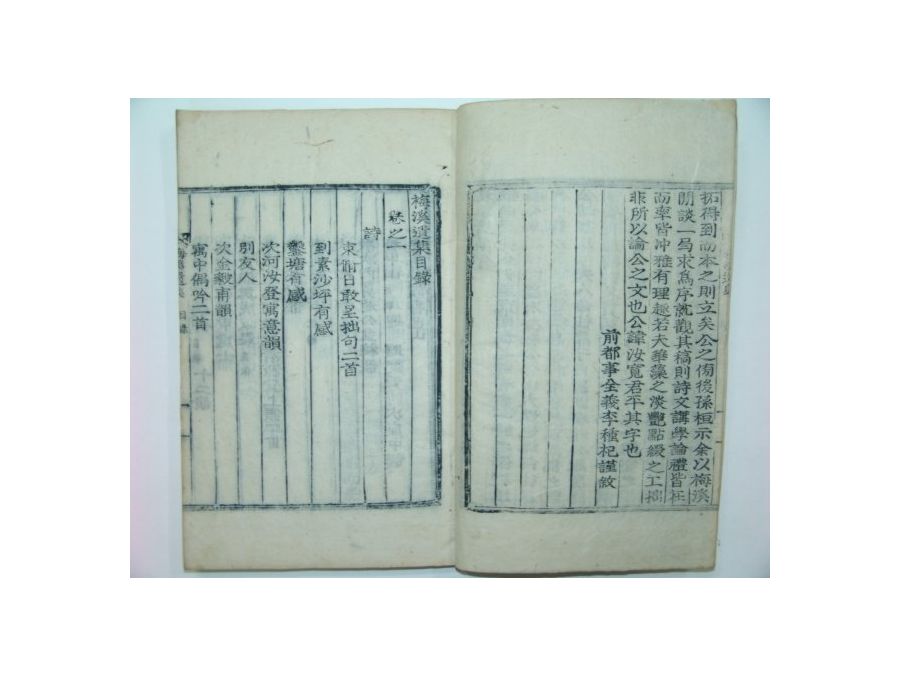 拓得到而本之則立矣公之傍後孫桓示余以梅溪
閒談一局求爲序就觀其稿則詩文講學論禮皆在
而率皆冲雅有理趣若夫華藻之淡艶點綴之工拙
非所以論公之文也公諱汝寬君平其字也
前都事全義李種杞謹敘
梅溪遺集目錄
卷之一
詩
柬耐日敢呈拙句二首
到素沙坪有感
鑿塘有感
次河汝登寓意韻
別友人
次金毅甫韻
寓中偶吟二首
梅溪遺集 目錄